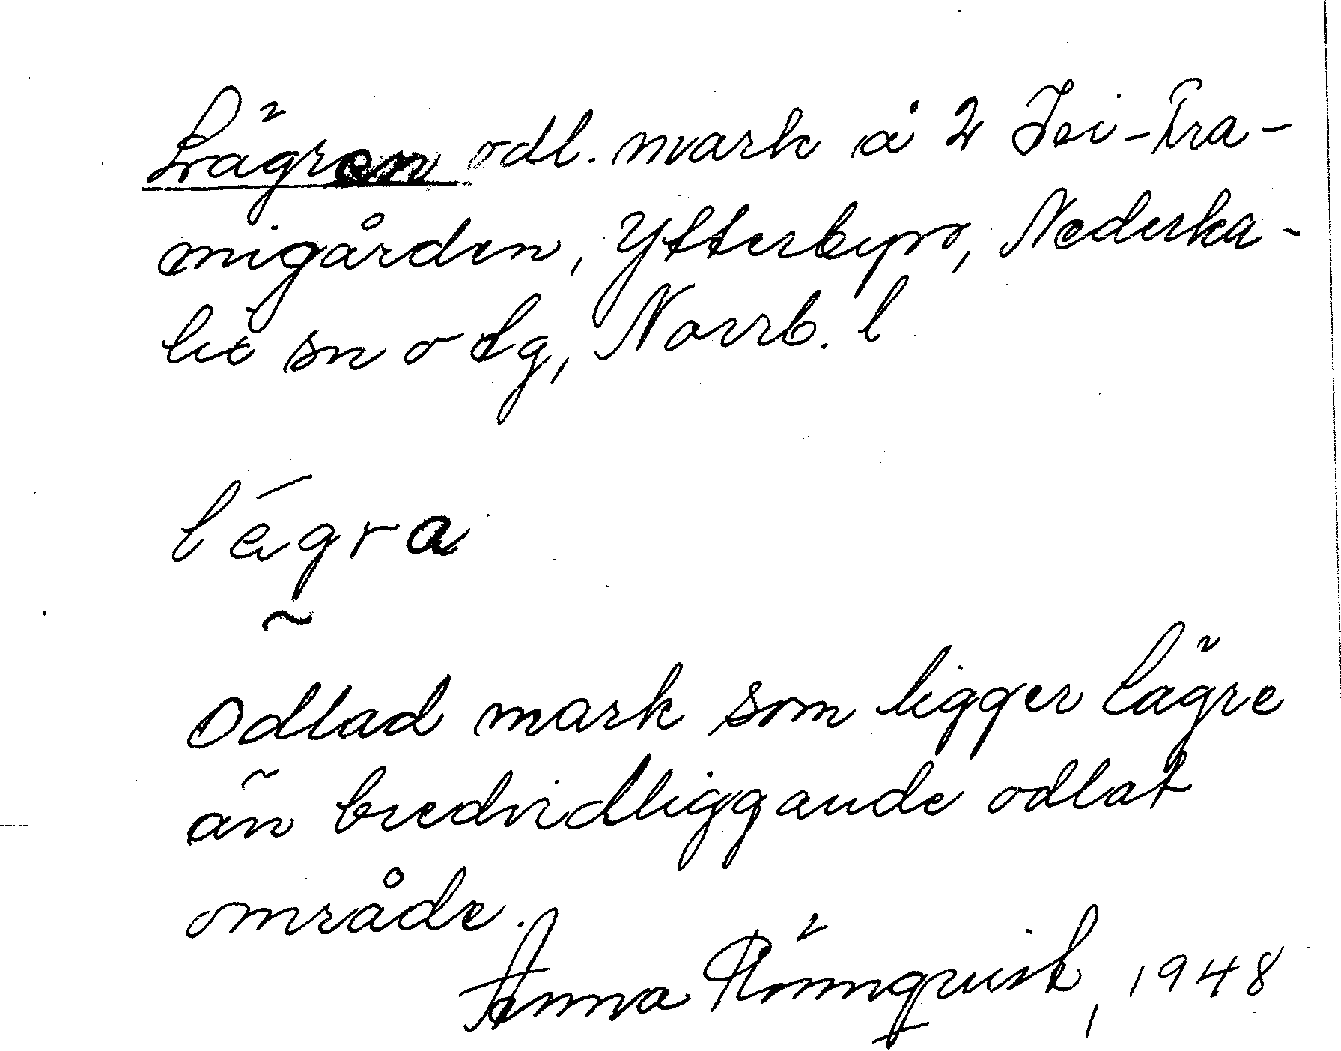 Lägren odl. mark å 2 Jei-Era-
migården, Ytterbyn, Nederka-
lix sn o tg, Norrb. l
lägra
Odlad mark som ligger lägre
än bredvidliggande odlat
område.
Anna Rönnqvist, 1948